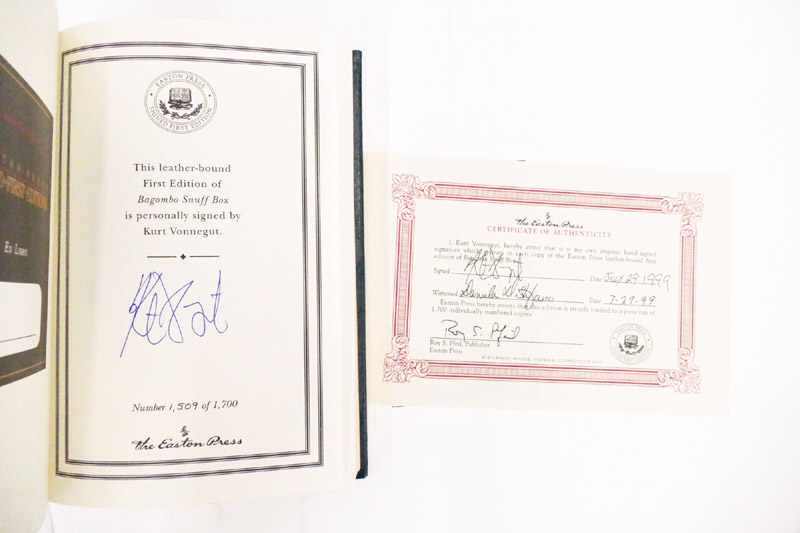 Ex Libris
EASTON PRESS
SIGNED FIRST EDITION
This leather-bound
First Edition of
Bagombo Snuff Box
is personally signed by
Kurt Vonnegut.
Number 1,509 of 1,700
The Easton Press
The Easton Press
CERTIFICATE OF AUTHENTICITY
I, Kurt Vonnegut, hereby attest that it is my own original hand-signed
signature which appears in each copy of the Easton Press leather-bound first
edition of Bagombo Snuff Box.
Signed Date July 29 1999
Witnessed Date 7-29-99
Easton Press hereby attests that this edition is strictly limited to a press run of
1,700 individually numbered copies.
Roy S. Pfeil
Roy S. Pfeil, Publisher
Easton Press
47 RICHARDS AVENUE, NORWALK, CONNECTICUT